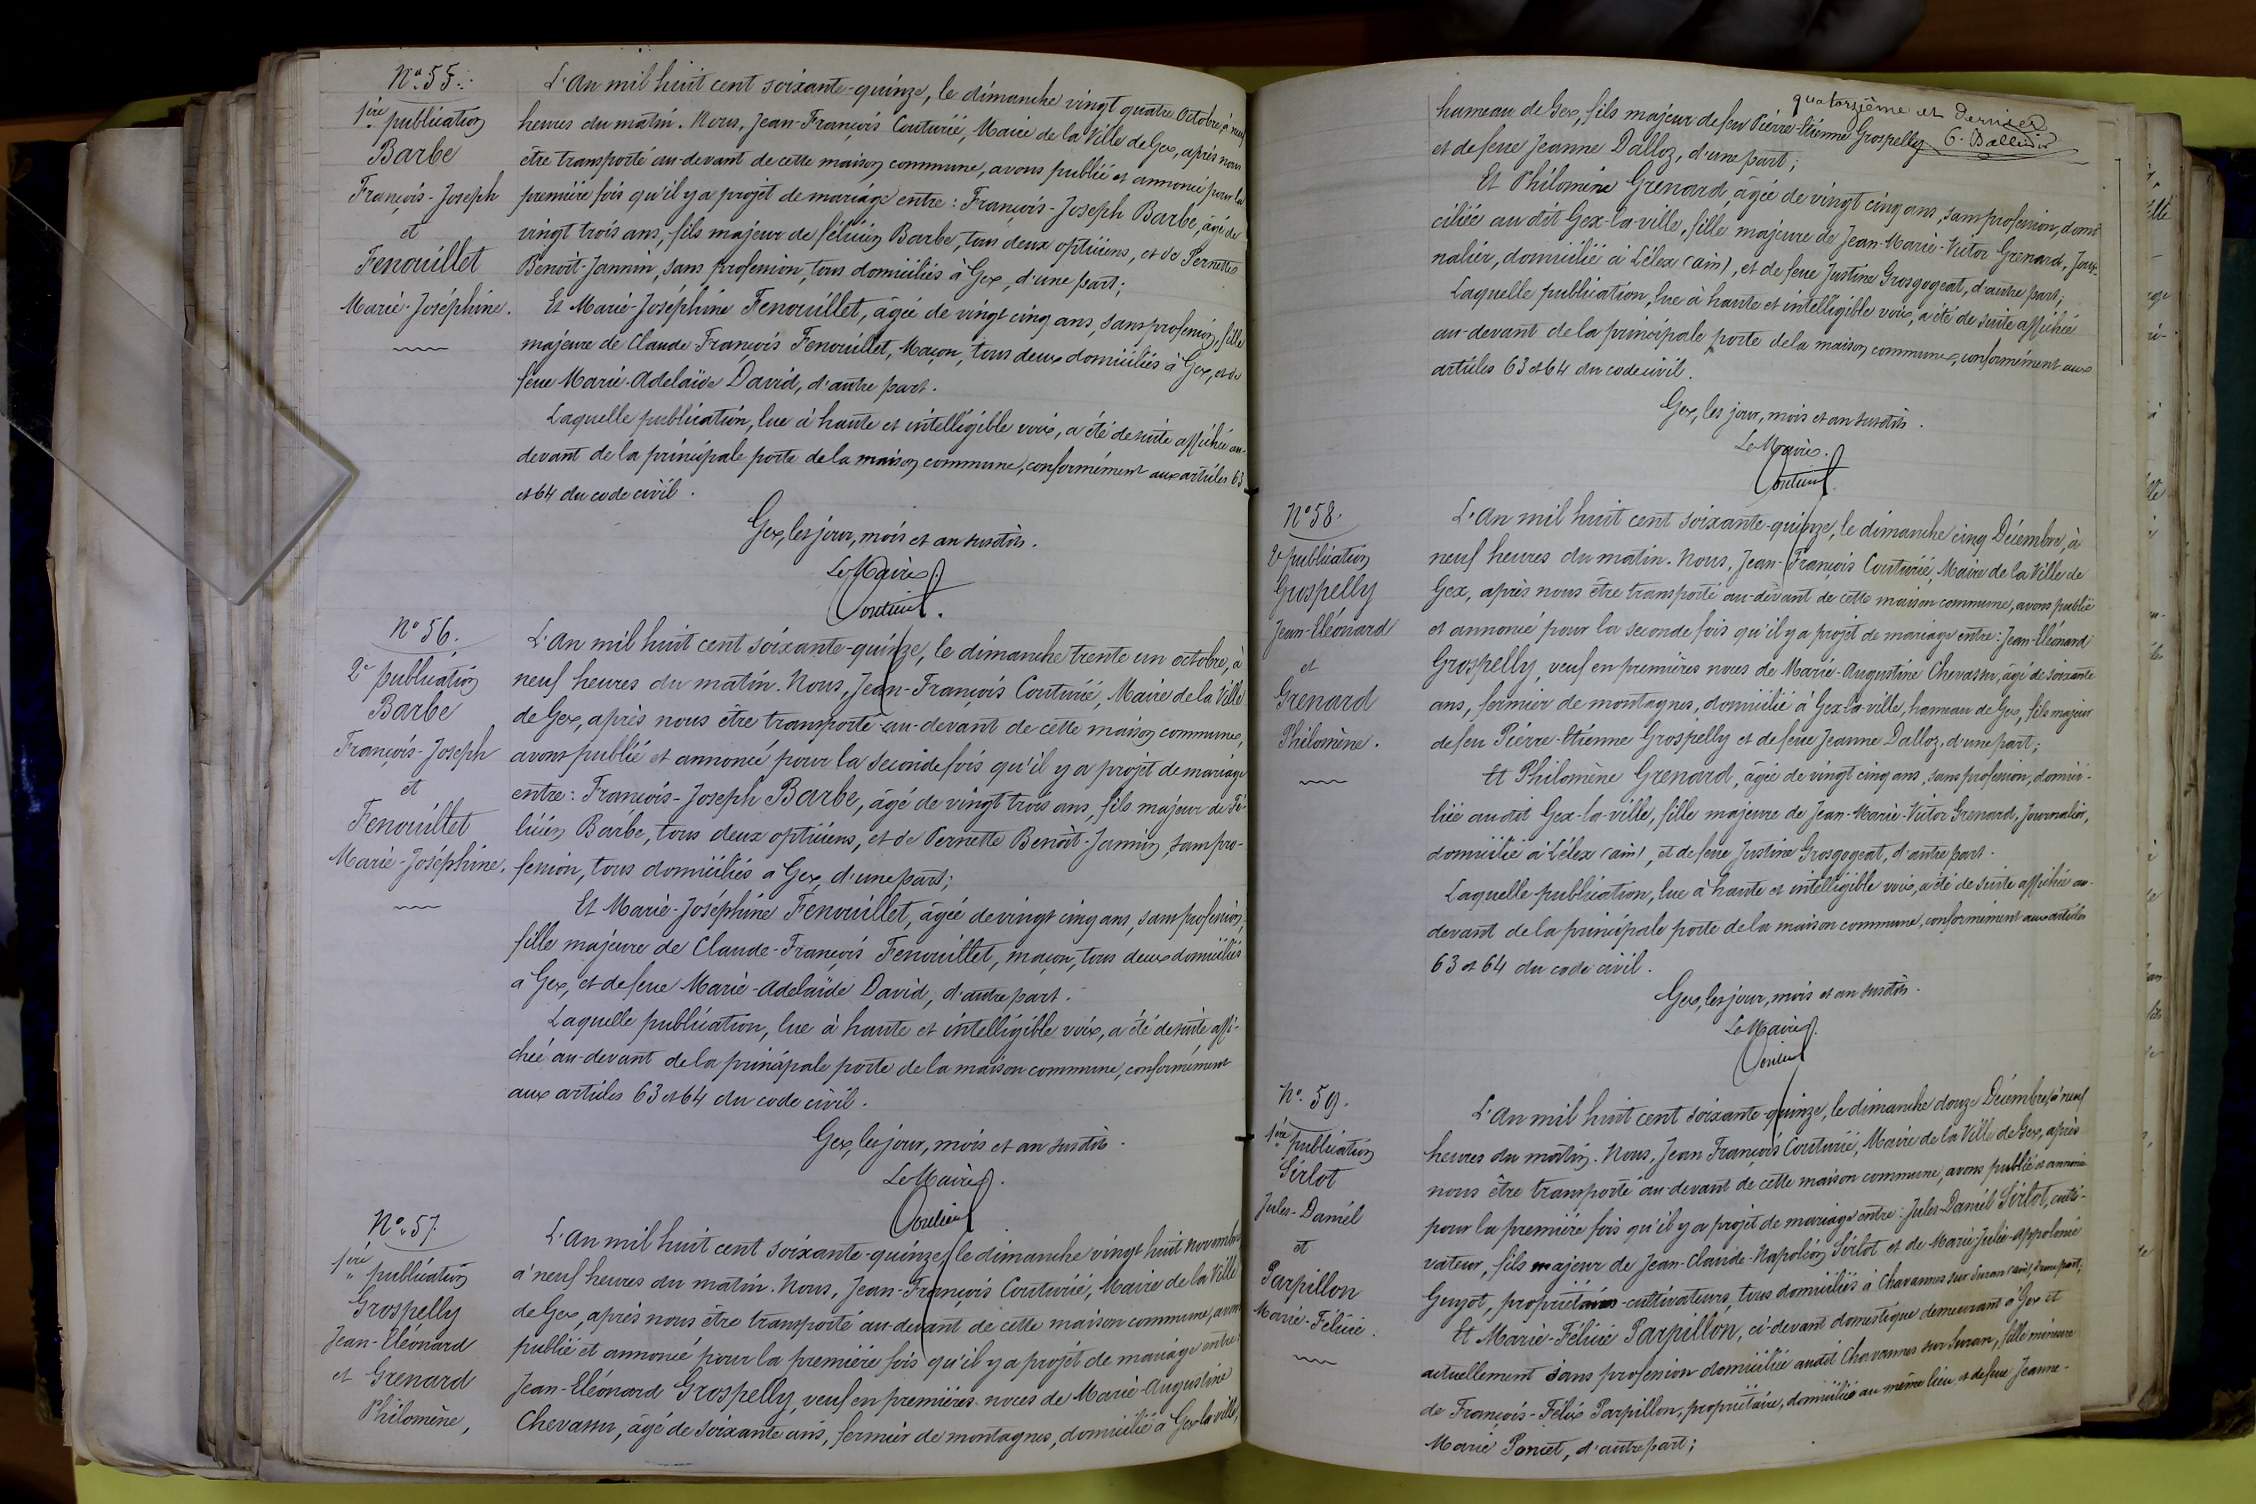 N° 55.
1ère publication
Barbe
François-Joseph
et
Fenouillet
Marie-Joséphine.
L'An mil huit cent soixante-quinze, le dimanche vingt quatre Octobre, à neuf
heures du matin. Nous, Jean-François Couturié, Maire de la Ville de Gex, après nous
être transporté au-devant de cette maison commune, avons publié et annoncé pour la
première fois qu'il y a projet de mariage entre : François-Joseph Barbe, âgé de
vingt trois ans, fils majeur de félicien Barbe, tous deux opticiens, et de Pernette
Benoit-Jannin, sans profession, tous domiciliés à Gex, d'une part;
Et Marie-Joséphine Fenouillet, âgée de vingt cinq ans, sans profession, fille
majeure de Claude François Fenouillet, Maçon, tous deux domiciliés à Gex, et de
feue Marie-Adelaïde David, d'autre part.
Laquelle publication, lue à haute et intelligible voix, a été de suite affichée au-
devant de la principale porte de la maison commune, conformément aux articles 63
et 64 du code civil.
Gex, les jour, mois et an susdits.
Le Maire
Couturié
N° 56.
2e publication
Barbe
François-Joseph
et
Fenouillet
Marie-Joséphine.
L'An mil huit cent soixante-quinze, le dimanche trente un octobre, à
neuf heures du matin. Nous, Jean-François Couturié, Maire de la Ville
de Gex, après nous être transporté au-devant de cette maison commune,
avons publié et annoncé pour la seconde fois qu'il y a projet de mariage
entre : François-Joseph Barbe, âgé de vingt trois ans, fils majeur de Fé-
licien Barbe, tous deux opticiens, et de Pernette Benoit-Jannin, sans pro-
fession, tous domiciliés à Gex, d'une part;
Et Marie-Joséphine Fenouillet, âgée de vingt cinq ans, sans profession,
fille majeure de Claude-François Fenouillet, maçon, tous deux domiciliés
à Gex, et de feue Marie-Adelaïde David, d'autre part.
Laquelle publication, lue à haute et intelligible voix, a été de suite affi-
chée au-devant de la principale porte de la maison commune, conformément
aux articles 63 et 64 du code civil.
Gex, les jour, mois et an susdits.
Le Maire.
Couturié
N° 57
1ère publication
Grospelly
Jean-Eléonard
et Grenard
Philomène,
L'An mil huit cent soixante-quinze, le dimanche vingt huit novembre
à neuf heures du matin. Nous, Jean-François Couturié, Maire de la Ville
de Gex, après nous être transporté au-devant de cette maison commune, avons
publié et annoncé pour la première fois qu'il y a projet de mariage entre :
Jean-Eléonard Grospelly, veuf en premières noces de Marie Augustine
Chevassu, âgé de soixante ans, fermier de montagnes, domicilié à Gex la ville,
quatorzième et dernier
G. Balleidier
hameau de Gex, fils majeur de feu Pierre-Etienne Grospelly
et de feue Jeanne Dalloz, d'une part;
Et Philomène Grenard, âgée de vingt cinq ans, sans profession, domi-
ciliée au dit Gex-la-ville, fille majeure de Jean-Marie-Victor Grenard, Jour-
nalier, domicilié à Lélex (ain), et de feue Justine Grosgogeat, d'autre part;
Laquelle publication, lue à haute et intelligible voix, a été de suite affichée
au-devant de la principale porte de la maison commune, conformément aux
articles 63 et 64 du code civil.
Gex, les jour, mois et an susdits.
Le Maire.
Couturié
N° 58.
2e publication
Grospelly
Jean-Eléonard
et
Grenard
Philomène.
L'An mil huit cent soixante-quinze, le dimanche cinq Décembre, à
neuf heures du matin. Nous, Jean-François Couturié, Maire de la Ville de
Gex, après nous être transporté au-devant de cette maison commune, avons publié
et annoncé pour la seconde fois qu'il y a projet de mariage entre : Jean-Eléonard
Grospelly, veuf en premières noces de Marie-Augustine Chevassu, âgé de soixante
ans, fermier de montagnes, domicilié à Gex-la-ville, hameau de Gex, fils majeur
de feu Pierre-Etienne Grospelly et de feue Jeanne Dalloz, d'une part;
Et Philomène Grenard, âgée de vingt cinq ans, sans profession, domici-
liée au dit Gex-la-ville, fille majeure de Jean-Marie-Victor Grenard, Journalier,
domicilié à Lélex (ain), et de feue Justine Grosgogeat, d'autre part.
Laquelle publication, lue à haute et intelligible voix, a été de suite affichée au-
devant de la principale porte de la maison commune, conformément aux articles
63 et 64 du code civil.
Gex, les jour, mois et an susdits.
Le Maire.
Couturié
N° 59.
1ère publication
Sirlot
Jules-Daniel
et
Parpillon
Marie-Félicie.
L'An mil huit cent soixante-quinze, le dimanche douze Décembre, à neuf
heures du matin. Nous, Jean François Couturié, Maire de la Ville de Gex, après
nous être transporté au-devant de cette maison commune, avons publié et annoncé
pour la première fois qu'il y a projet de mariage entre : Jules-Daniel Sirlot, culti-
vateur, fils majeur de Jean-Claude-Napoléon Sirlot et de Marie Julie-Appolonie
Guyot, propriétaires-cultivateurs, tous domiciliés à Chavannes sur Suran (ain), d'une part;
Et Marie-Félicie Parpillon, ci-devant domestique demeurant à Gex et
actuellement sans profession domiciliée audit Chavannes sur Suran, fille mineure
de François-Félix Parpillon, propriétaire, domicilié au même lieu, et de feue Jeanne-
Marie Poncet, d'autre part;